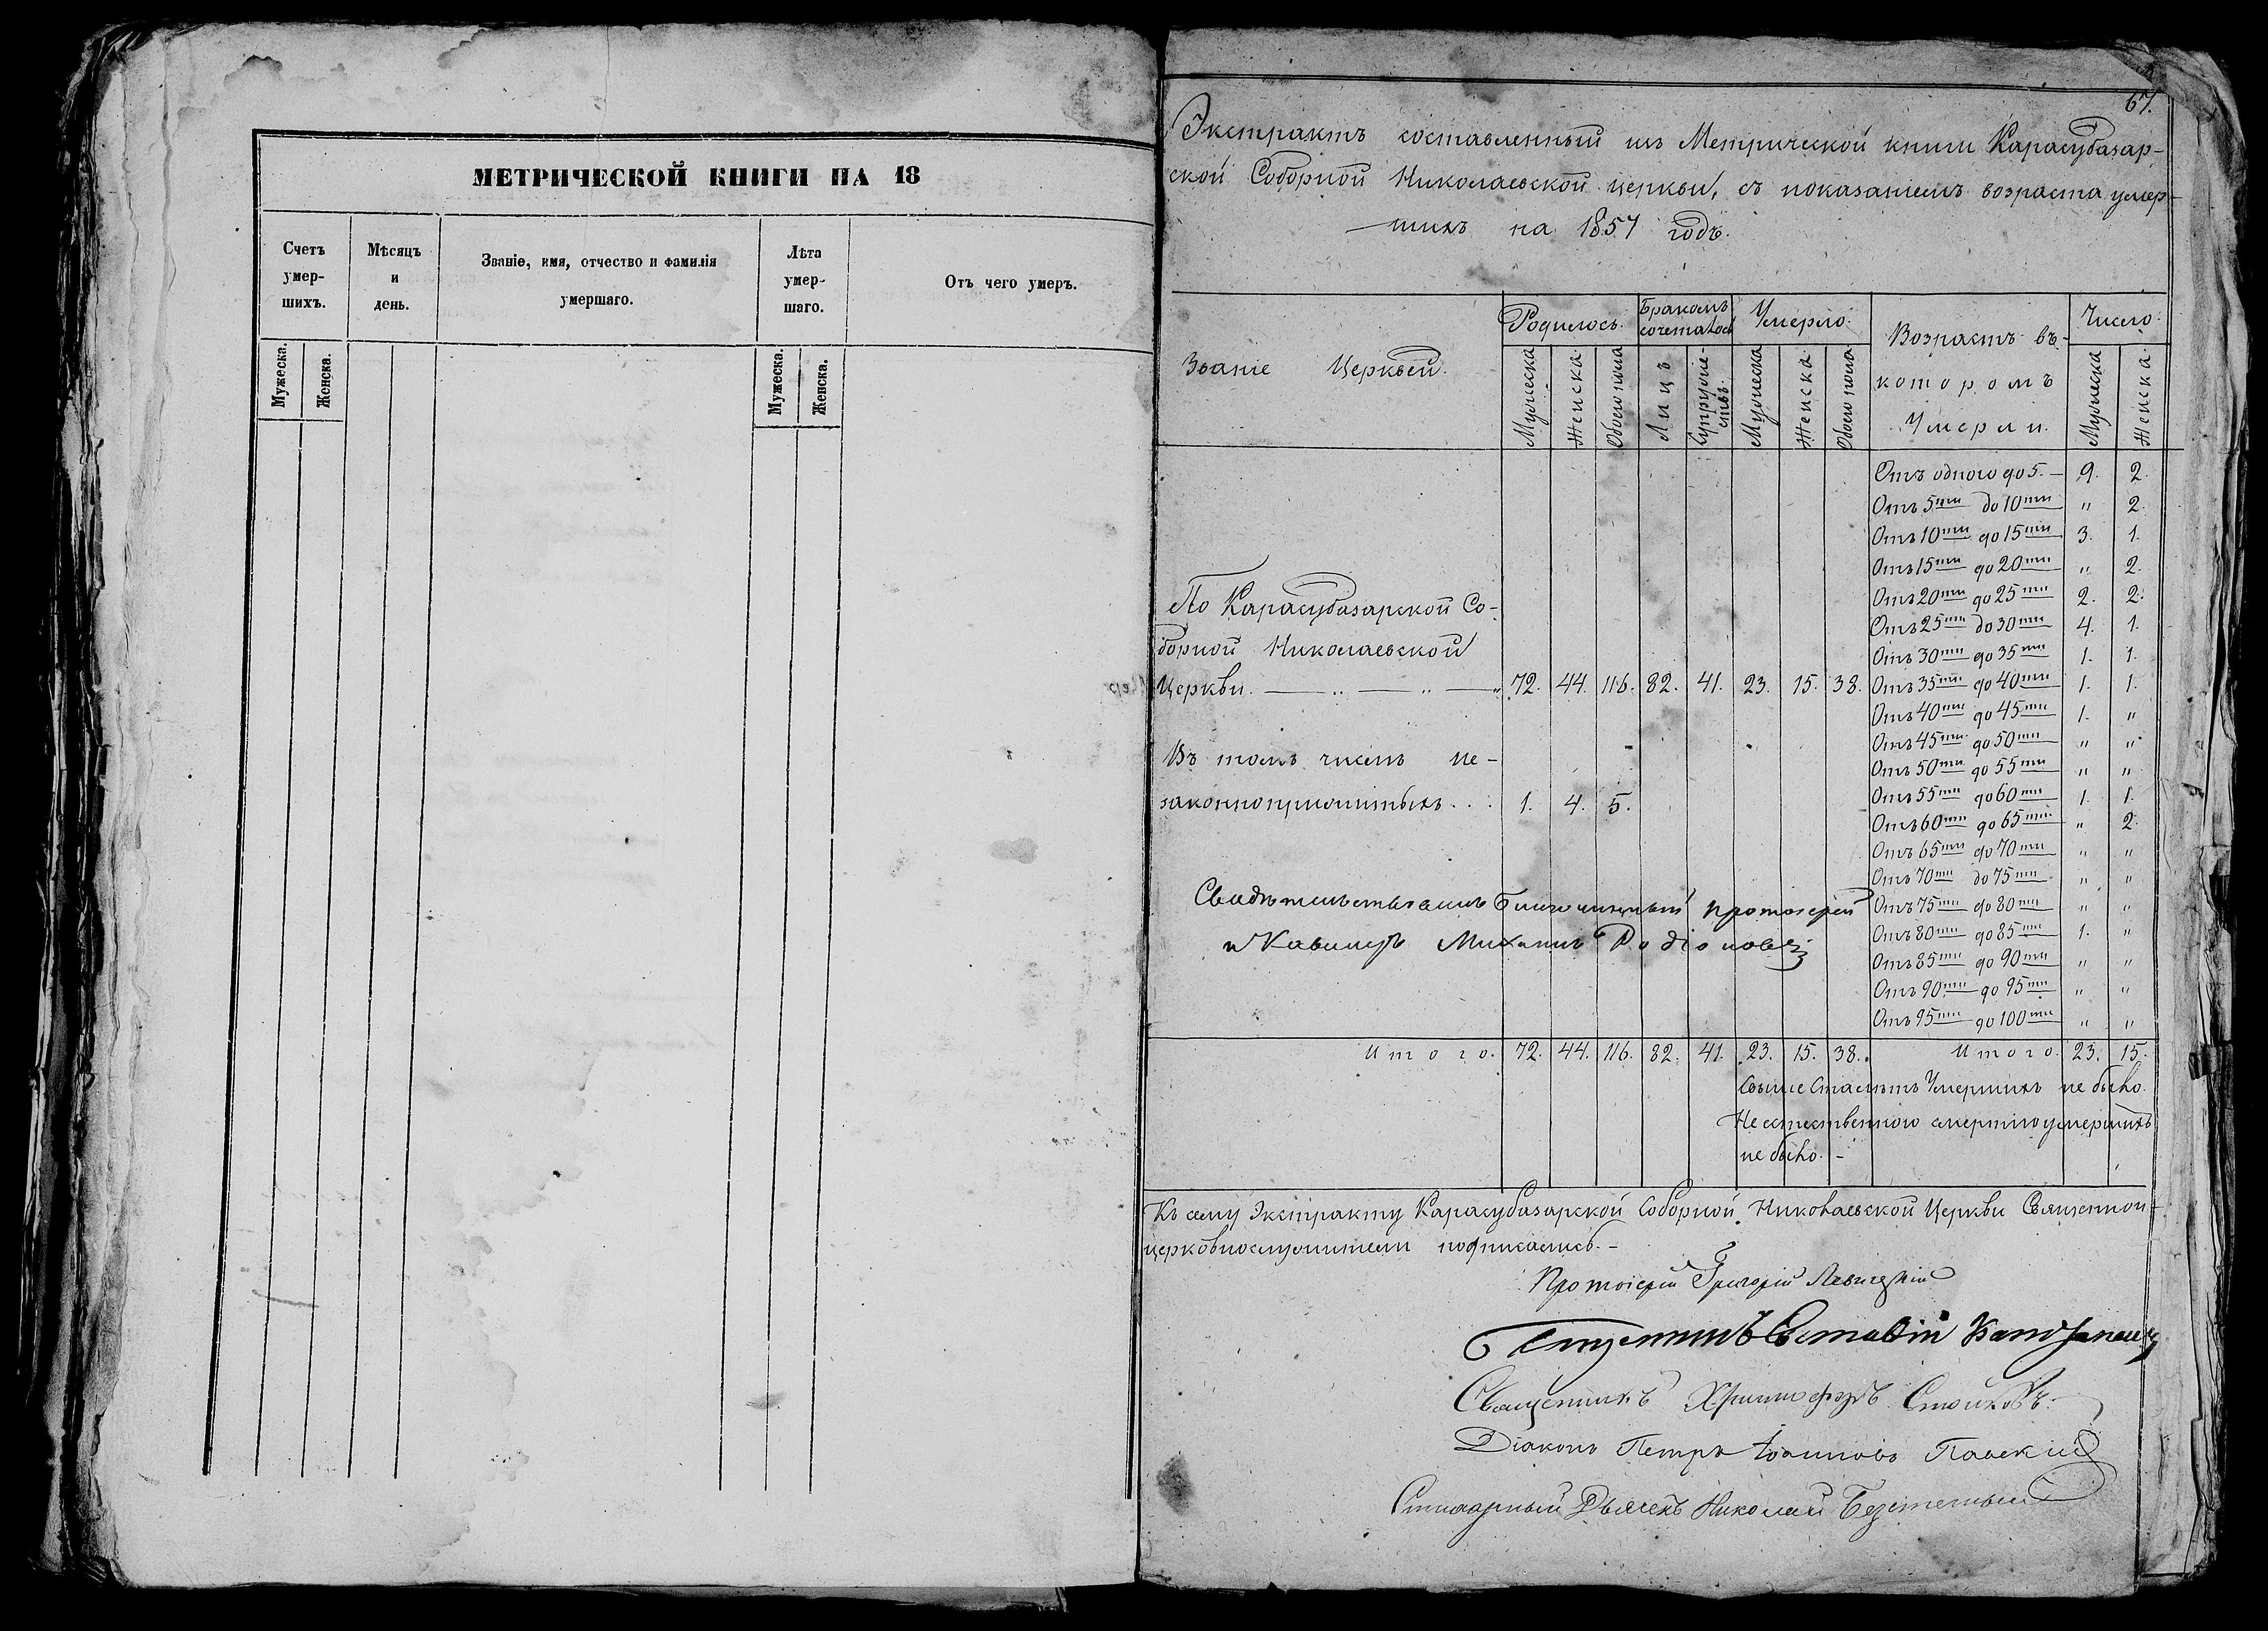 МЕТРИЧЕСКОЙ КНИГИ НА 18
Счетъ умер- шихъ.
Мѣсяцъ и день.
Званіе, имя, отчество и фамилія умершаго.
Лѣта умер- шаго.
Отъ чего умеръ.
Мужеска. Женска.
Мужеска. Женска.
67.
Экстрактъ составленный изъ Метрической книги Карасубазар-
ской Соборной Николаевской церкви, съ показаніемъ возраста умер-
шихъ на 1857 годъ.
Званіе Церквей.
Родилось.
Бракомъ сочеталось
Умерло.
Возрастъ въ которомъ Умерли.
Число.
Мужеска Женска Обоего пола Лицъ Супруже- ствъ. Мужеска Женска Обоего пола Мужеска Женска
Отъ одного до 5. — 9. 2.
Отъ 5ти до 10ти " 2.
Отъ 10ти до 15ти 3. 1.
Отъ 15ти до 20ти " 2.
Отъ 20ти до 25ти 2. 2.
Отъ 25ти до 30ти 4. 1.
Отъ 30ти до 35ти 1. 1.
Отъ 35ти до 40ти 1. 1.
Отъ 40ти до 45ти 1. "
Отъ 45ти до 50ти " "
Отъ 50ти до 55ти " "
Отъ 55ти до 60ти 1. 1.
Отъ 60ти до 65ти " 2.
Отъ 65ти до 70ти " "
Отъ 70ти до 75ти " "
Отъ 75ти до 80ти " "
Отъ 80ти до 85ти 1. "
Отъ 85ти до 90ти " "
Отъ 90ти до 95ти " "
Отъ 95ти до 100ти " "
По Карасубазарской Со-
борной Николаевской
Церкви. — .. — .. — " 72. 44. 116. 82. 41. 23. 15. 38.
Въ томъ числѣ не-
законноприжитыхъ . . . 1. 4. 5.
Свидѣтельствовалъ Благочинный протоіерей
и Кавалеръ Михаилъ Родіоновъ
Итого. 72. 44. 116. 82. 41. 23. 15. 38. Итого. 23. 15.
Свыше Ста лѣтъ Умершихъ не было.
Неестественною смертію умершихъ
не было. -
Къ сему Экстракту Карасубазарской Соборной Николаевской Церкви Священно-
церковнослужители подписались. -
Протоіерей Григорій
Священникъ Христофоръ Стойковъ.
Діаконъ Петръ Іоанновъ Павскій
Дьячекъ Николай